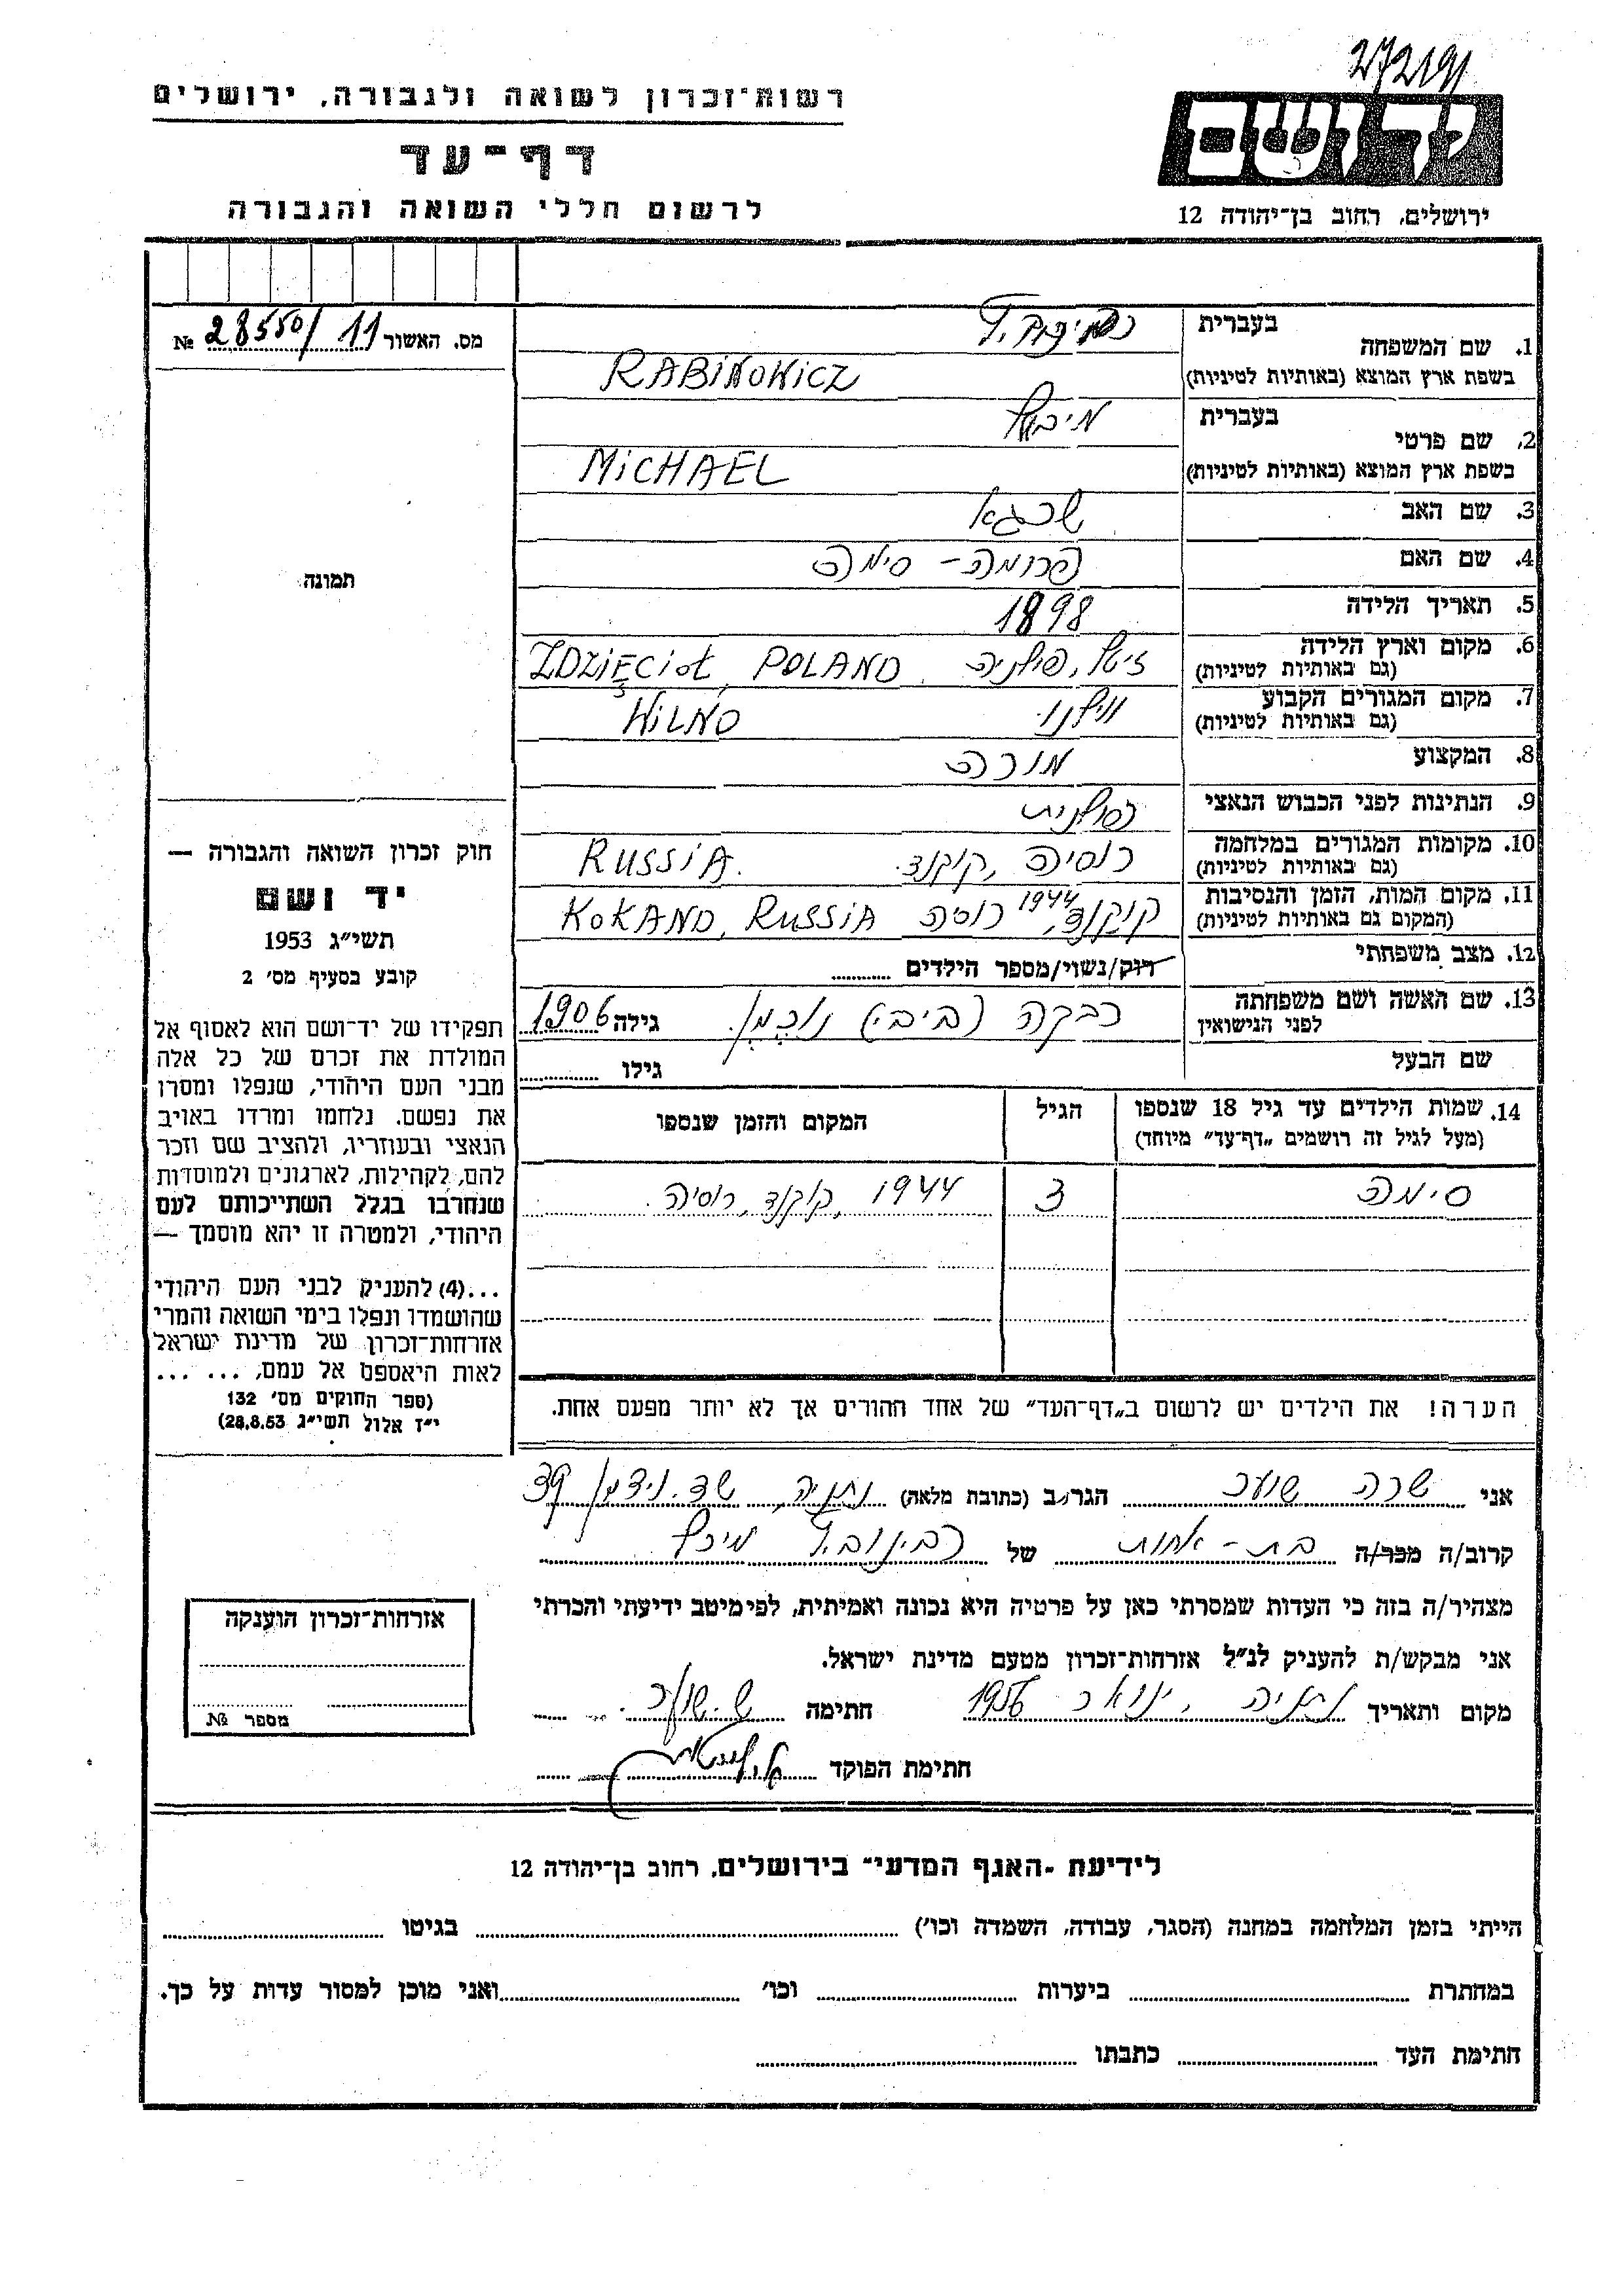 272191
רשות־זכרון לשואה ולגבורה, ירושלים
דף־עד
לרשום חללי השואה והגבורה
יד ושם
ירושלים, רחוב בן־יהודה 12
מס. האשור 28550/11 №
תמונה
חוק זכרון השואה והגבורה —
יד ושם
תשי״ג 1953
קובע בסעיף מס׳ 2
תפקידו של יד־ושם הוא לאסוף אל
המולדת את זכרם של כל אלה
מבני העם היהודי, שנפלו ומסרו
את נפשם. נלחמו ומרדו באויב
הנאצי ובעוזריו, ולהציב שם וזכר
להם, לקהילות, לארגונים ולמוסדות
שנחרבו בגלל השתייכותם לעם
היהודי, ולמטרה זו יהא מוסמך —
...(4) להעניק לבני העם היהודי
שהושמדו ונפלו בימי השואה והמרי
אזרחות־זכרון של מדינת ישראל
לאות היאספם אל עמם, ... ...
(ספר החוקים מס׳ 132
י״ז אלול תשי״ג 28.8.53)
1. שם המשפחה בעברית רבינוביץ
בשפת ארץ המוצא (באותיות לטיניות) RABINOWICZ
2. שם פרטי בעברית מיכאל
בשפת ארץ המוצא (באותיות לטיניות) MICHAEL
3. שם האב שרגא
4. שם האם פרומה - סימה
5. תאריך הלידה 1898
6. מקום וארץ הלידה (גם באותיות לטיניות) זיטל, פולניה ZDZIĘCIOŁ, POLAND
7. מקום המגורים הקבוע (גם באותיות לטיניות) ווילנו WILNO
8. המקצוע מורה
9. הנתינות לפני הכבוש הנאצי פולנית
10. מקומות המגורים במלחמה (גם באותיות לטיניות) רוסיה, קוקנד. RUSSIA.
11. מקום המות, הזמן והנסיבות (המקום גם באותיות לטיניות) קוקנד, 1944 רוסיה KOKAND, RUSSIA
12. מצב משפחתי רוק/נשוי/מספר הילדים
13. שם האשה ושם משפחתה לפני הנישואין רבקה (ביבי) נוכמן. גילה 1906
שם הבעל גילו
14. שמות הילדים עד גיל 18 שנספו (מעל לגיל זה רושמים „דף־עד״ מיוחד) הגיל המקום והזמן שנספו
סימה 3 1944, קוקנד, רוסיה.
הערה! את הילדים יש לרשום ב„דף־העד״ של אחד ההורים אך לא יותר מפעם אחת.
אני שרה שוער הגר/ב (כתובת מלאה) נתניה, שד. ניצה 39
קרוב/ה מכר/ה בת - אחות של רבינוביץ מיכאל
מצהיר/ה בזה כי העדות שמסרתי כאן על פרטיה היא נכונה ואמיתית, לפי מיטב ידיעתי והכרתי
אני מבקש/ת להעניק לנ״ל אזרחות־זכרון מטעם מדינת ישראל.
מקום ותאריך נתניה, ינואר 1956 חתימה ש. שוער
חתימת הפוקד
אזרחות־זכרון הוענקה
מספר №
לידיעת ״האגף המדעי״ בירושלים, רחוב בן־יהודה 12
הייתי בזמן המלחמה במחנה (הסגר, עבודה, השמדה וכו׳) בגיטו
במחתרת ביערות וכו׳ ואני מוכן למסור עדות על כך.
חתימת העד כתבתו